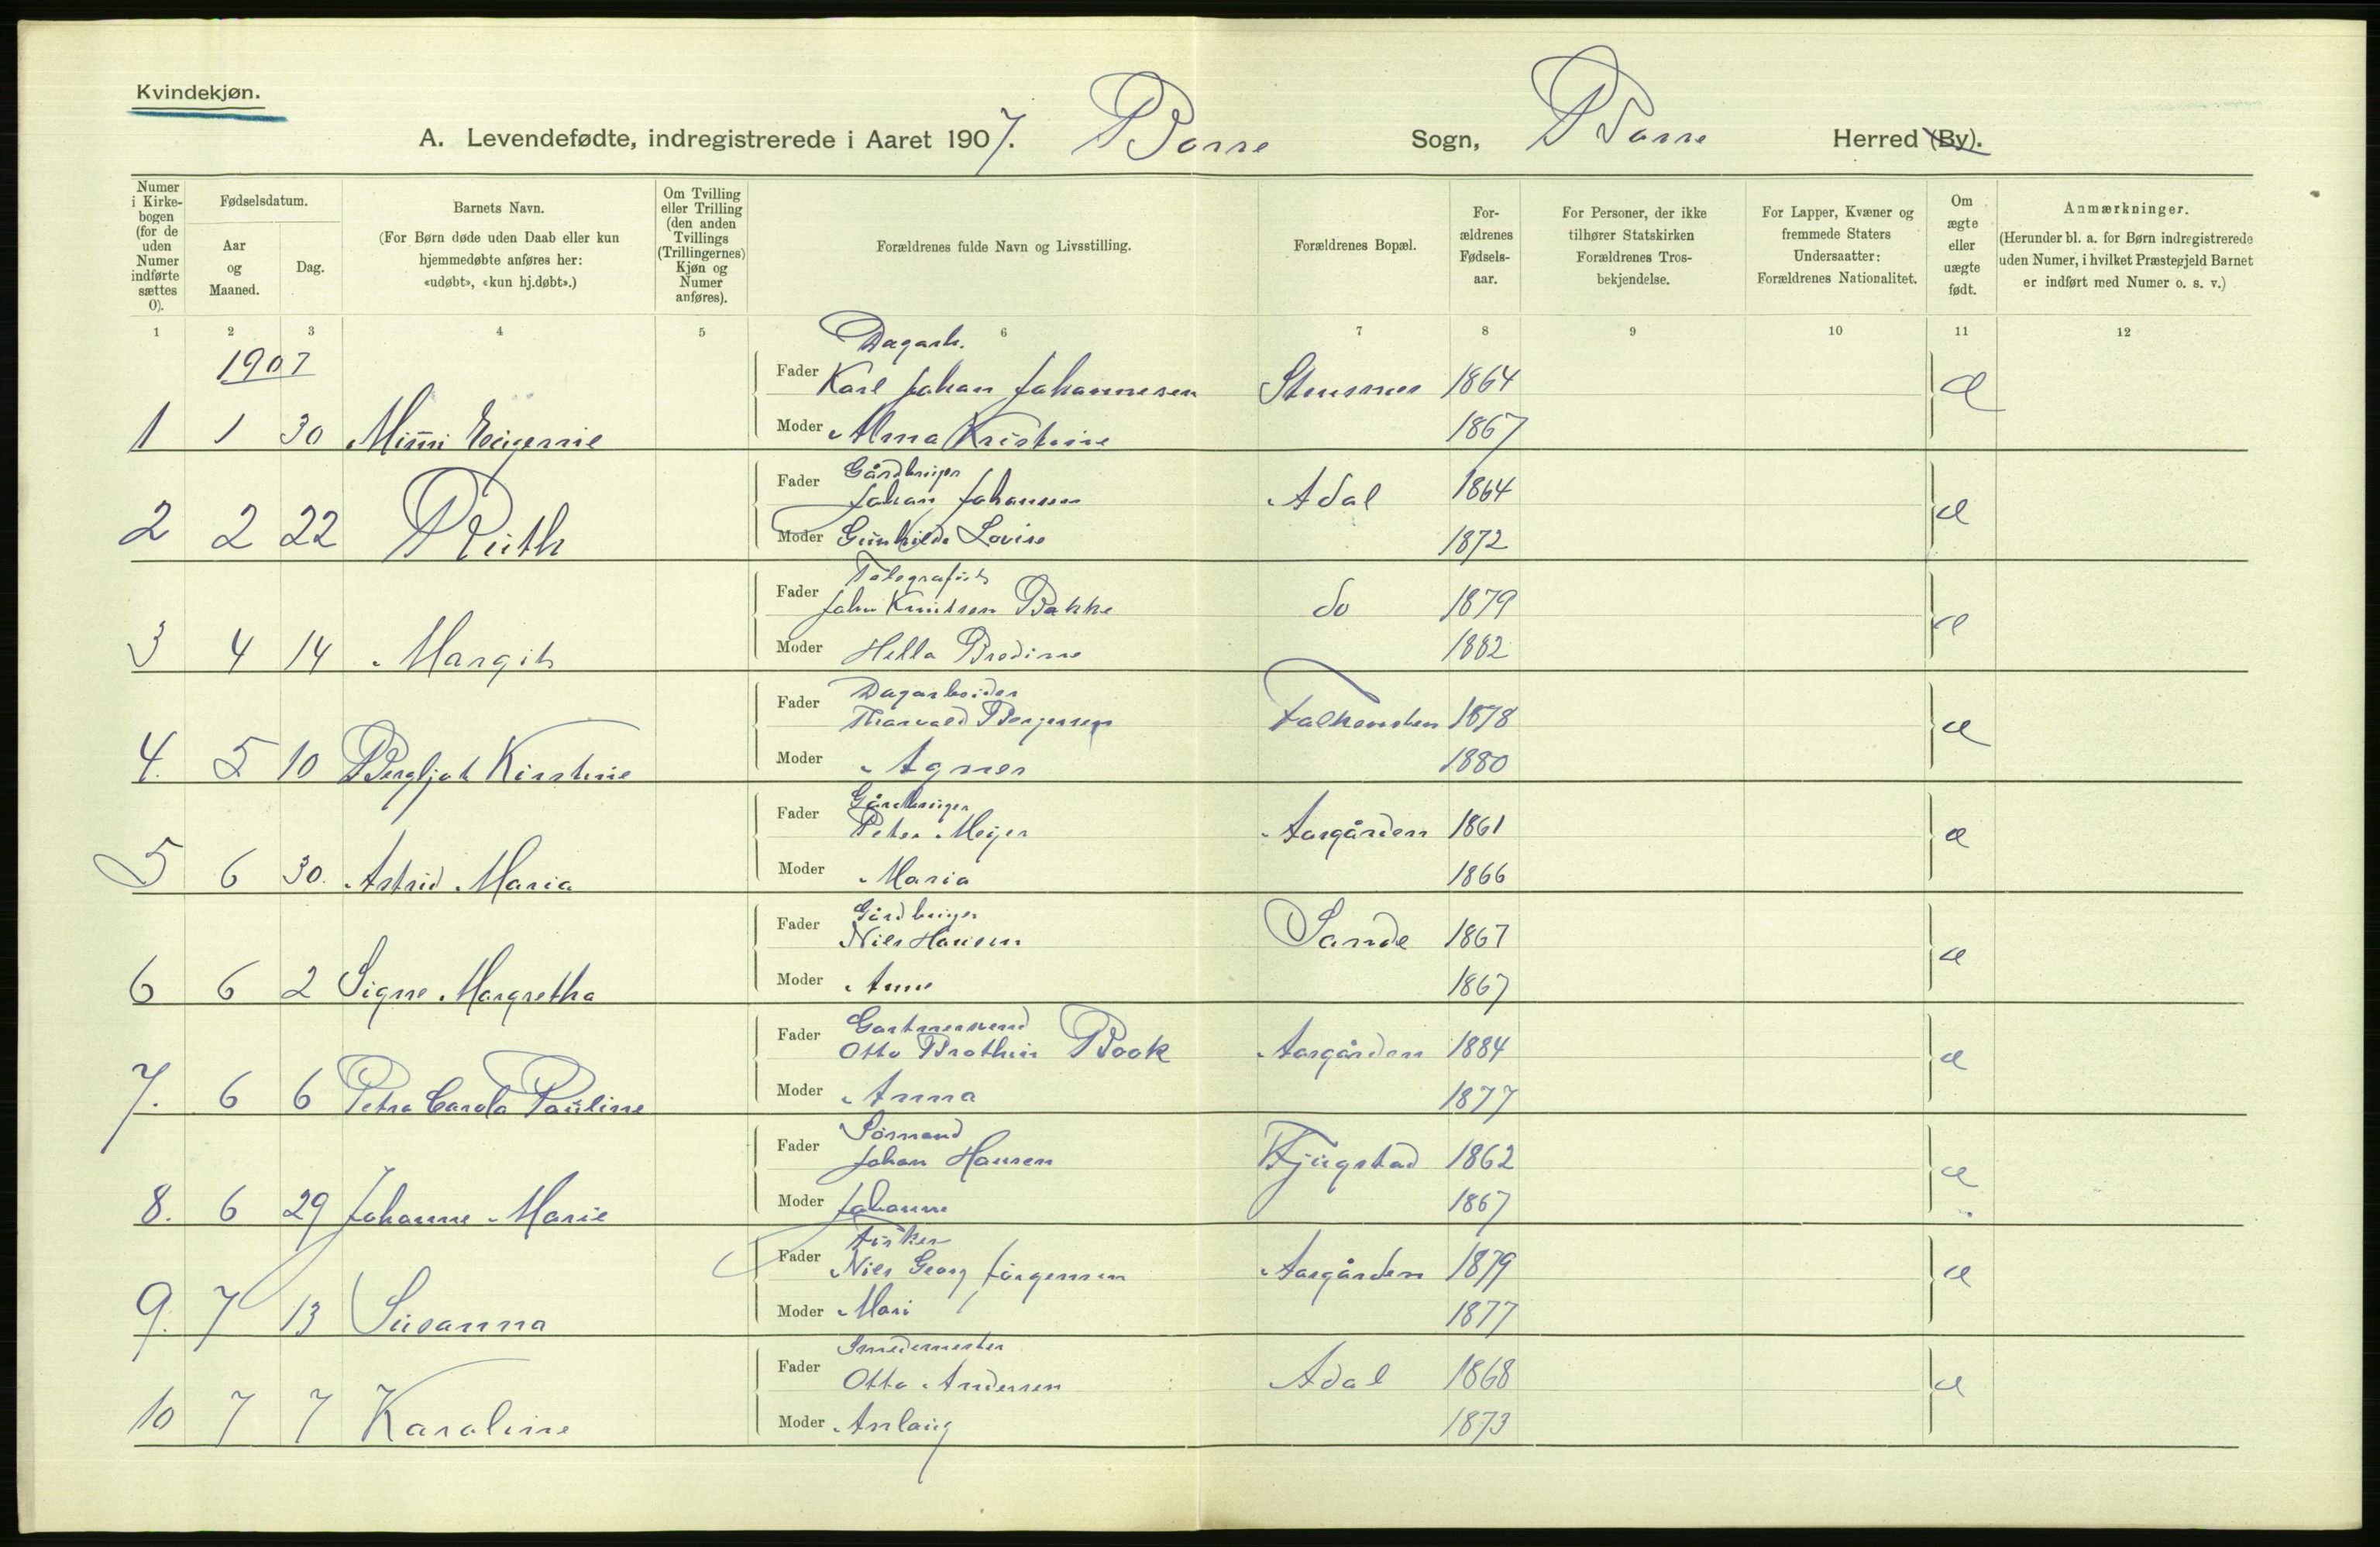 Kvindekjøn.
A. Levendefødte, indregistrerede i Aaret 1907. Borre Sogn, Borre Herred (By).
Numer i Kirke-bogen (for de uden Numer indførte sættes 0).
Fødselsdatum.
Aar og Maaned.
Dag.
Barnets Navn.
(For Børn døde uden Daab eller kun hjemmedøbte anføres her: «udøbt», «kun hj.døbt».)
Om Tvilling eller Trilling (den anden Tvillings (Trillingernes) Kjøn og Numer anføres).
Forældrenes fulde Navn og Livsstilling.
Forældrenes Bopæl.
For-ældrenes Fødsels-aar.
For Personer, der ikke tilhører Statskirken Forældrenes Tros-bekjendelse.
For Lapper, Kvæner og fremmede Staters Undersaatter: Forældrenes Nationalitet.
Om ægte eller uægte født.
Anmærkninger.
(Herunder bl. a. for Børn indregistrerede uden Numer, i hvilket Præstegjeld Barnet er indført med Numer o. s. v.)
1 2 3 4 5 6 7 8 9 10 11 12
1907
Dagarb.
Fader Karl Johan Johannesen 1864 æ
1 1 30 Mimi Eugenie Moder Alma Kristine 1867
Gårdbruger
Fader Johan Johansen Adal 1864 æ
2 2 22 Ruth Moder Gunhilda Lovise 1872
Telegrafist
Fader John Knudsen Bakke do 1879 æ
3 4 14 Margit Moder Hella Bredine 1882
Dagarbeider
Fader Thorvald Borgersen Falkensten 1878 æ
4. 5 10 Bergljot Kirstine Moder Agnes 1880
Gårdbruger
Fader Peter Meyer Aasgården 1861 æ
5 6 30. Astrid Maria Moder Maria 1866
Gårdbruger
Fader Nils Hansen Sande 1867 æ
6 6 2 Signe Margretha Moder Anne 1867
Gartnersvend
Fader Otto Book Aasgården 1884 æ
7. 6 6 Petra Carola Pauline Moder Anna 1877
Sömand
Fader Johan Hansen 1862 æ
8. 6 29 Johanne Marie Moder Johanne 1867
Fisker
Fader Nils Georg Jörgensen Aasgården 1879 æ
9. 7 13 Susanna Moder Mari 1877
Smedemester
Fader Otto Andersen Adal 1868 æ
10 7 7 Karoline Moder Anlaug 1873